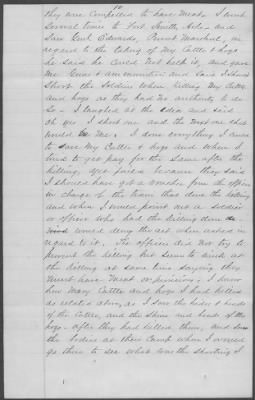 10
they were compelled to have meat. I went
several times to Fort Smith, Ark - and
Saw Earl Edwards, Provost Marshal, in
regard to the taking of my Cattle & hogs
he said he could not help it, and gave
me Guns & ammunition and said I should
Shoot the Soldiers when killing my Cattle
and hogs as they had no authority to do
so - I laughed at the idea and said
oh yes, I shoot one and the next one that
would be me. I done everything I could
to save my Cattle & hogs and when I
tried to get pay for the same after the
killing, was forced because they said
I should have got a voucher from the officer
in charge of the team that done the killing
and when I would point out a soldier
or officer who had the killing done he
would deny the act when asked in
regard to it. The officers did not try to
prevent the killing but seem to wink at
the killing at same time saying they
must have meat or provision. I know
how many Cattle and hogs I had killed
as related above, as I saw the hides & heads
of the Cattle, and the skins and heads of the
hogs - after they had killed them, and saw
the bodies at their Camp when I would
go there to see what was the shooting I